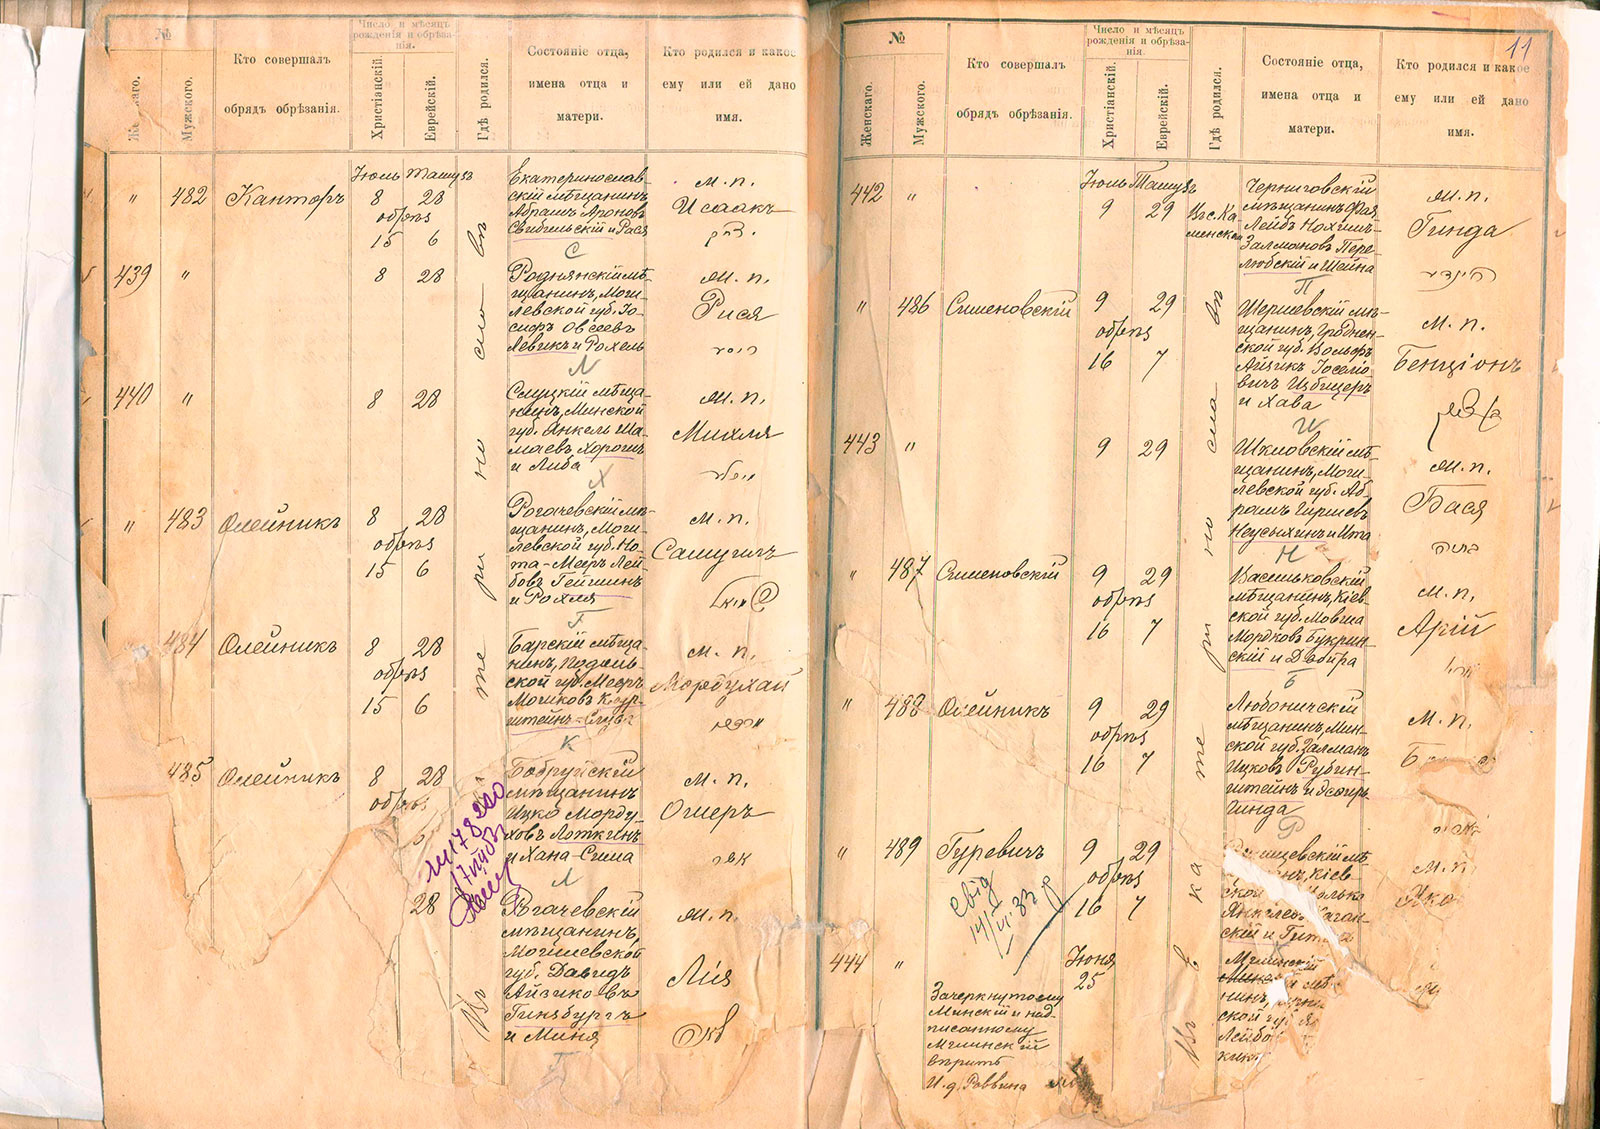 №
Женскаго.
Мужского.
Кто совершалъ
обрядъ обрѣзанія.
Число и мѣсяцъ
рожденія и обрѣза-
нія.
Христіанскій.
Еврейскій.
Гдѣ родился.
Состояніе отца,
имена отца и
матери.
Кто родился и какое
ему или ей дано
имя.
Іюль Тамузъ
" 482 Канторъ 8 28
обрѣз
15 6
Екатеринослав-
скій мѣщанинъ
Абрамъ Ароновъ
и Рася
С
м. п.
Исаакъ
יצחק
439 " 8 28
Роднянскій мѣ-
щанинъ, Моги-
левской губ. Іо-
сифъ Овсеевъ
Левикъ и Рохель
Л
м. п.
Рися
ריסע
440 " 8 28
Слуцкій мѣща-
нинъ, Минской
губ. Янкель Ша-
маевъ Хорошъ
и Либа
Х
м. п.
Михля
" 483 Олейникъ 8 28
обрѣз
15 6
Рогачевскій мѣ-
щанинъ, Моги-
левской губ. Но-
та-Мееръ Лей-
бовъ
и Рохля
Г
м. п.
Самуилъ
484 Олейникъ 8 28
обрѣз
15 6
Барскій мѣща-
нинъ, Подоль-
ской губ. Мееръ
Мошковъ
К
м. п.
Мордухай
485 Олейникъ 8 28
обрѣз
6
Бобруйскій
мѣщанинъ
Ицко Морду-
ховъ Лоткинъ
и Хана-Сима
Л
м. п.
Ошеръ
אשר
28
Рогачевскій
мѣщанинъ,
Могилевской
губ. Давидъ
Айзиковъ
Гинзбургъ
и Миня
Г
м. п.
Лія
לאה
Въ Екатеринославѣ
11
№
Женскаго.
Мужского.
Кто совершалъ
обрядъ обрѣзанія.
Число и мѣсяцъ
рожденія и обрѣза-
нія.
Христіанскій.
Еврейскій.
Гдѣ родился.
Состояніе отца,
имена отца и
матери.
Кто родился и какое
ему или ей дано
имя.
Іюль Тамузъ
442 " 9 29
Въ с. Ка-
менском
Черниговскій
мѣщанинъ
Лейбъ Нохимъ-
Залмановъ Пере-
любскій и Шейна
П
м. п.
Гинда
הינדע
" 486 Сименовскій 9 29
обрѣз
16 7
Шерешевскій мѣ-
щанинъ, Гроднен-
ской губ. Вольфъ
Айзикъ Іоселіо-
вичъ Цбицеръ
и Хава
Ц
м. п.
Бенціонъ
443 " 9 29
Шкловскій мѣ-
щанинъ, Моги-
левской губ. Аб-
рамъ Гиршевъ
Неусыхинъ и Ита
Н
м. п.
Бася
באסיא
" 487 Сименовскій 9 29
обрѣз
16 7
Васильковскій
мѣщанинъ, Кіев-
ской губ. Мовша
Мордковъ Букрин-
скій и Двойра
Б
м. п.
Арій
" 488 Олейникъ 9 29
обрѣз
16 7
Любоничскій
мѣщанинъ, Мин-
ской губ. Залманъ
Ицковъ Рубин-
штейнъ и Эсфирь
Гинда
Р
м. п.
" 489 Гуревичъ 9 29
обрѣз
16 7
Кіев-
ской
Янкелевъ Каган-
скій и
К
м. п.
Яко
444 " Іюня
25
Мглинскій
Минскій мѣ-
нинъ,
ской губ
Лейбо
Зачеркнутому
Минскій и над-
писанному
Мглинскій
вѣрить
И. д. Раввина
Въ Екатеринославѣ